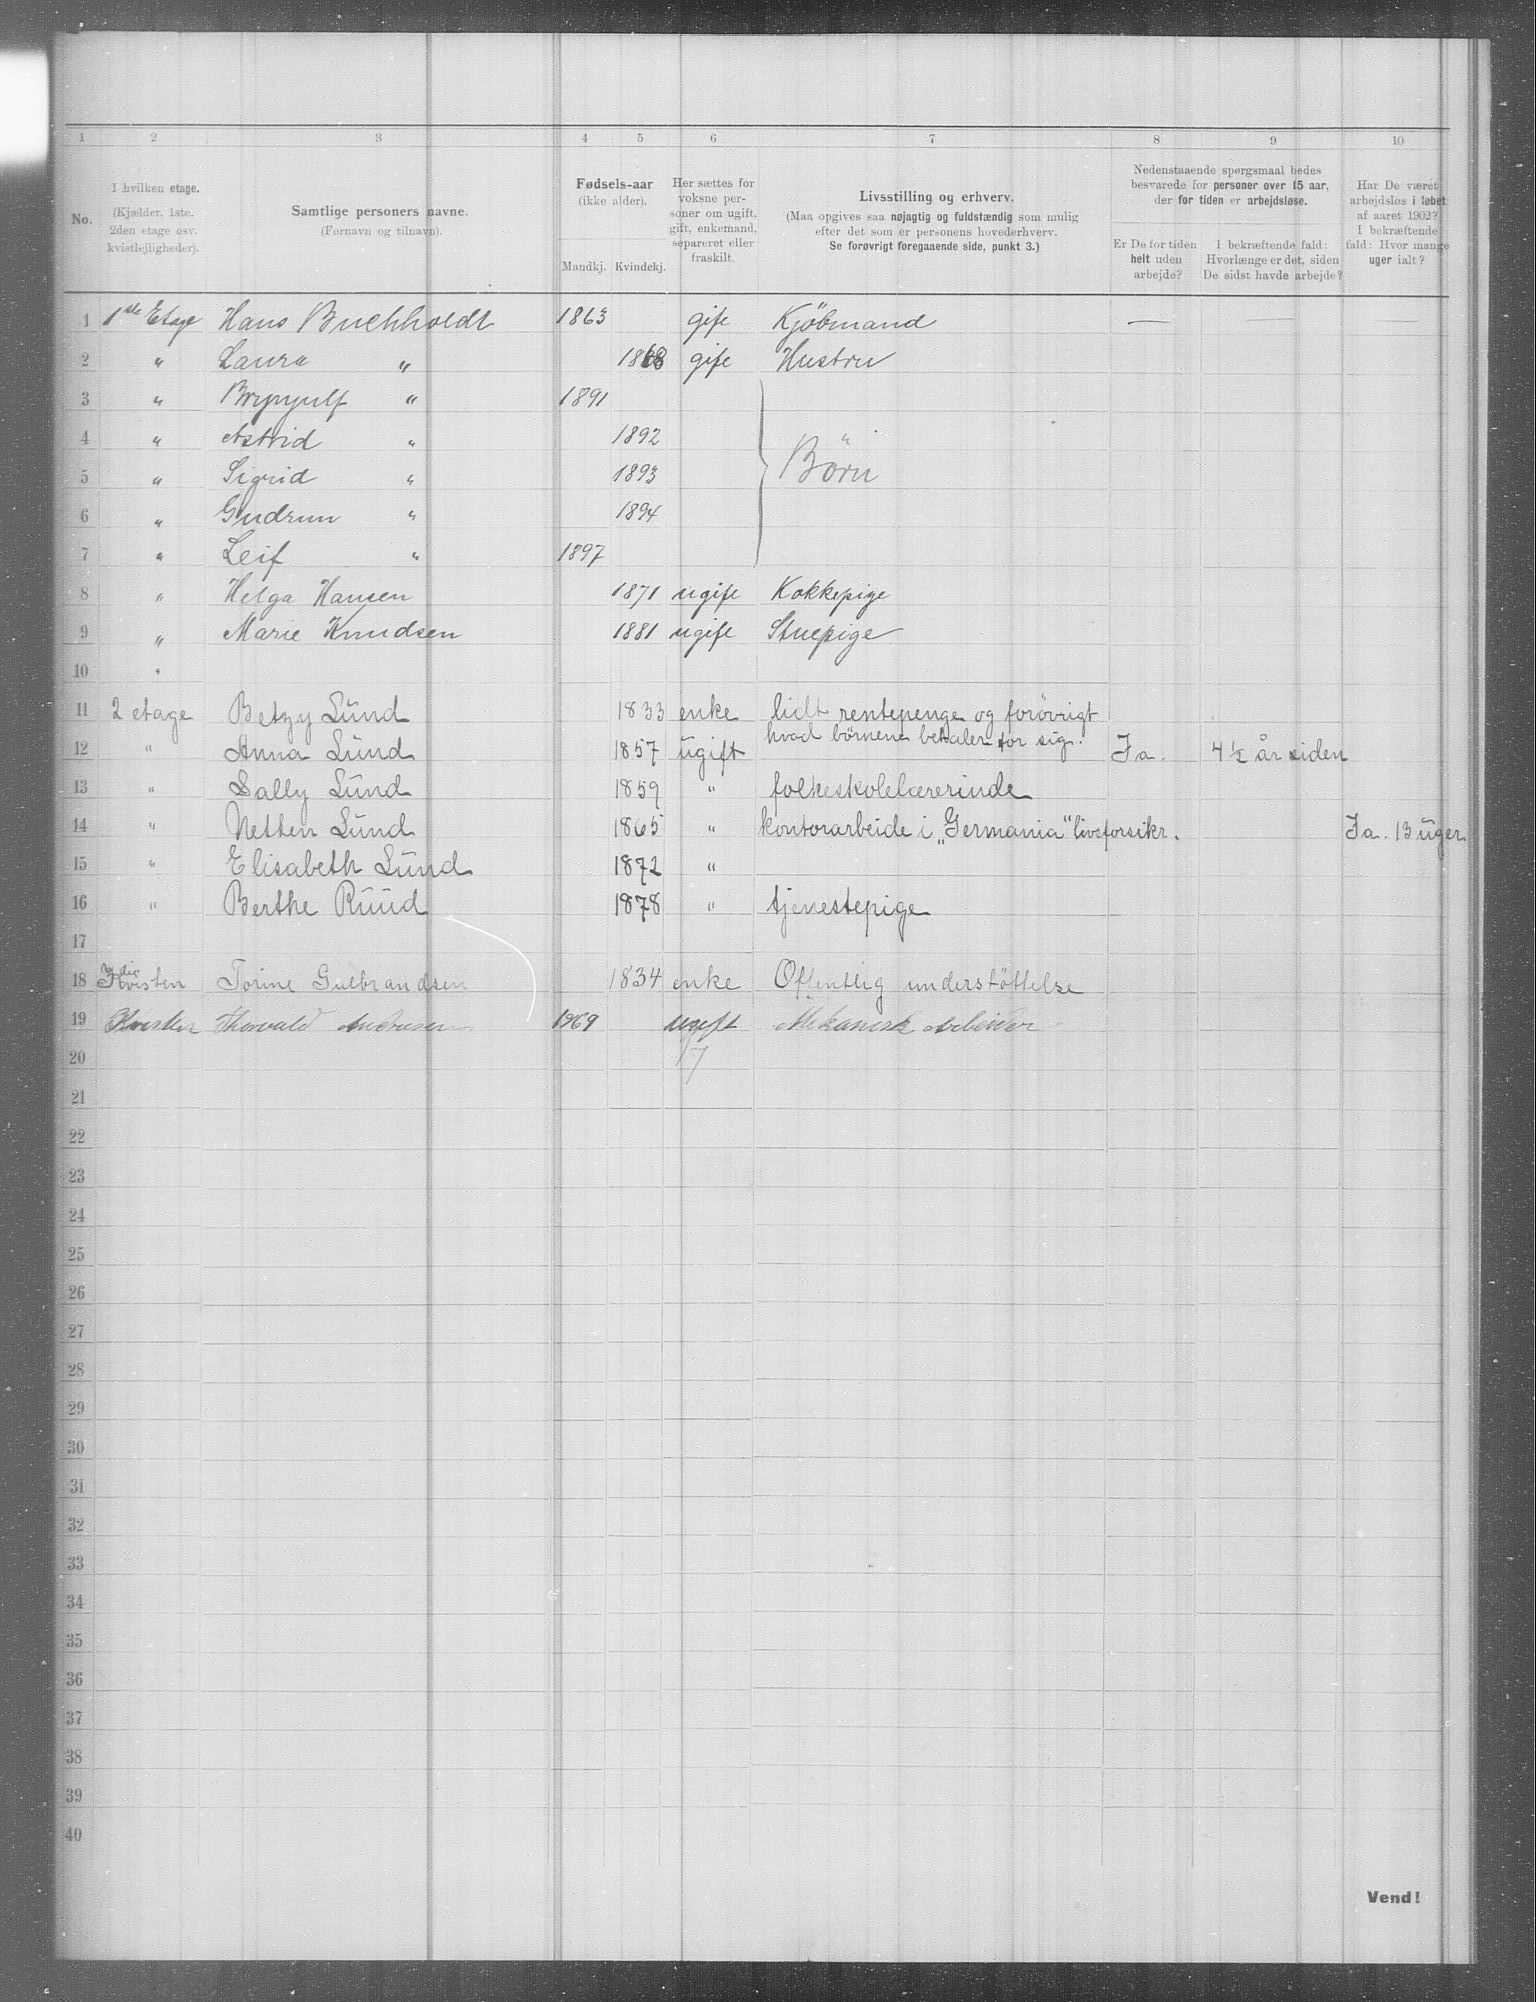 1 2 3 4 5 6 7 8 9 10
No.
I hvilken etage.
(Kjælder, 1ste,
2den etage osv.
kvistlejligheder).
Samtlige personers navne.
(Fornavn og tilnavn).
Fødsels-aar
(ikke alder).
Mandkj. Kvindekj.
Her sættes for
voksne per-
soner om ugift,
gift, enkemand,
separeret eller
fraskilt.
Livsstilling og erhverv.
(Maa opgives saa nøjagtig og fuldstændig som mulig
efter det som er personens hovederhverv.
Se forøvrigt foregaaende side, punkt 3.)
Nedenstaaende spørgsmaal bedes
besvarede for personer over 15 aar,
der for tiden er arbejdsløse.
Er De for tiden
helt uden
arbejde?
I bekræftende fald:
Hvorlænge er det, siden
De sidst havde arbejde?
Har De været
arbejdsløs i løbet
af aaret 1902?
I bekræftende
fald: Hvor mange
uger ialt?
1 1ste Etage Hans Buchholdt 1863 gift Kjöbmand — — —
2 " Laura " 1868 gift Hustru
3 " Brynjulf " 1891
4 " Astrid " 1892 "
5 " Sigrid " 1893 Börn
6 " Gudrun " 1894
7 " Leif " 1897
8 " Helga Hansen 1871 ugift Kokkepige
9 " Marie Knudsen 1881 ugift Stuepige
10 "
11 2 etage Betzy Lünd 1833 enke lidt rentepenge og forøvrigt
hvad börnene betaler for sig.
12 " Anna Lünd 1857 ugift Ja. 4½ år siden
13 " Sally Lünd 1859 " folkeskolelærerinde
14 " Netten Lünd 1865 " kontorarbeide i „Germania" livsforsikr. Ja. 13 üger
15 " Elisabeth Lünd 1872 "
16 " Berthe Rüüd 1878 " tjenestepige
17
18 Kvisten Torine Gulbrandsen 1834 enke Offentlig understöttelse
19 Kvisten Thorvald Andresen 1869 ugift Mekanisk Arbeider
20 17
21
22
23
24
25
26
27
28
29
30
31
32
33
34
35
36
37
38
39
40
Vend!